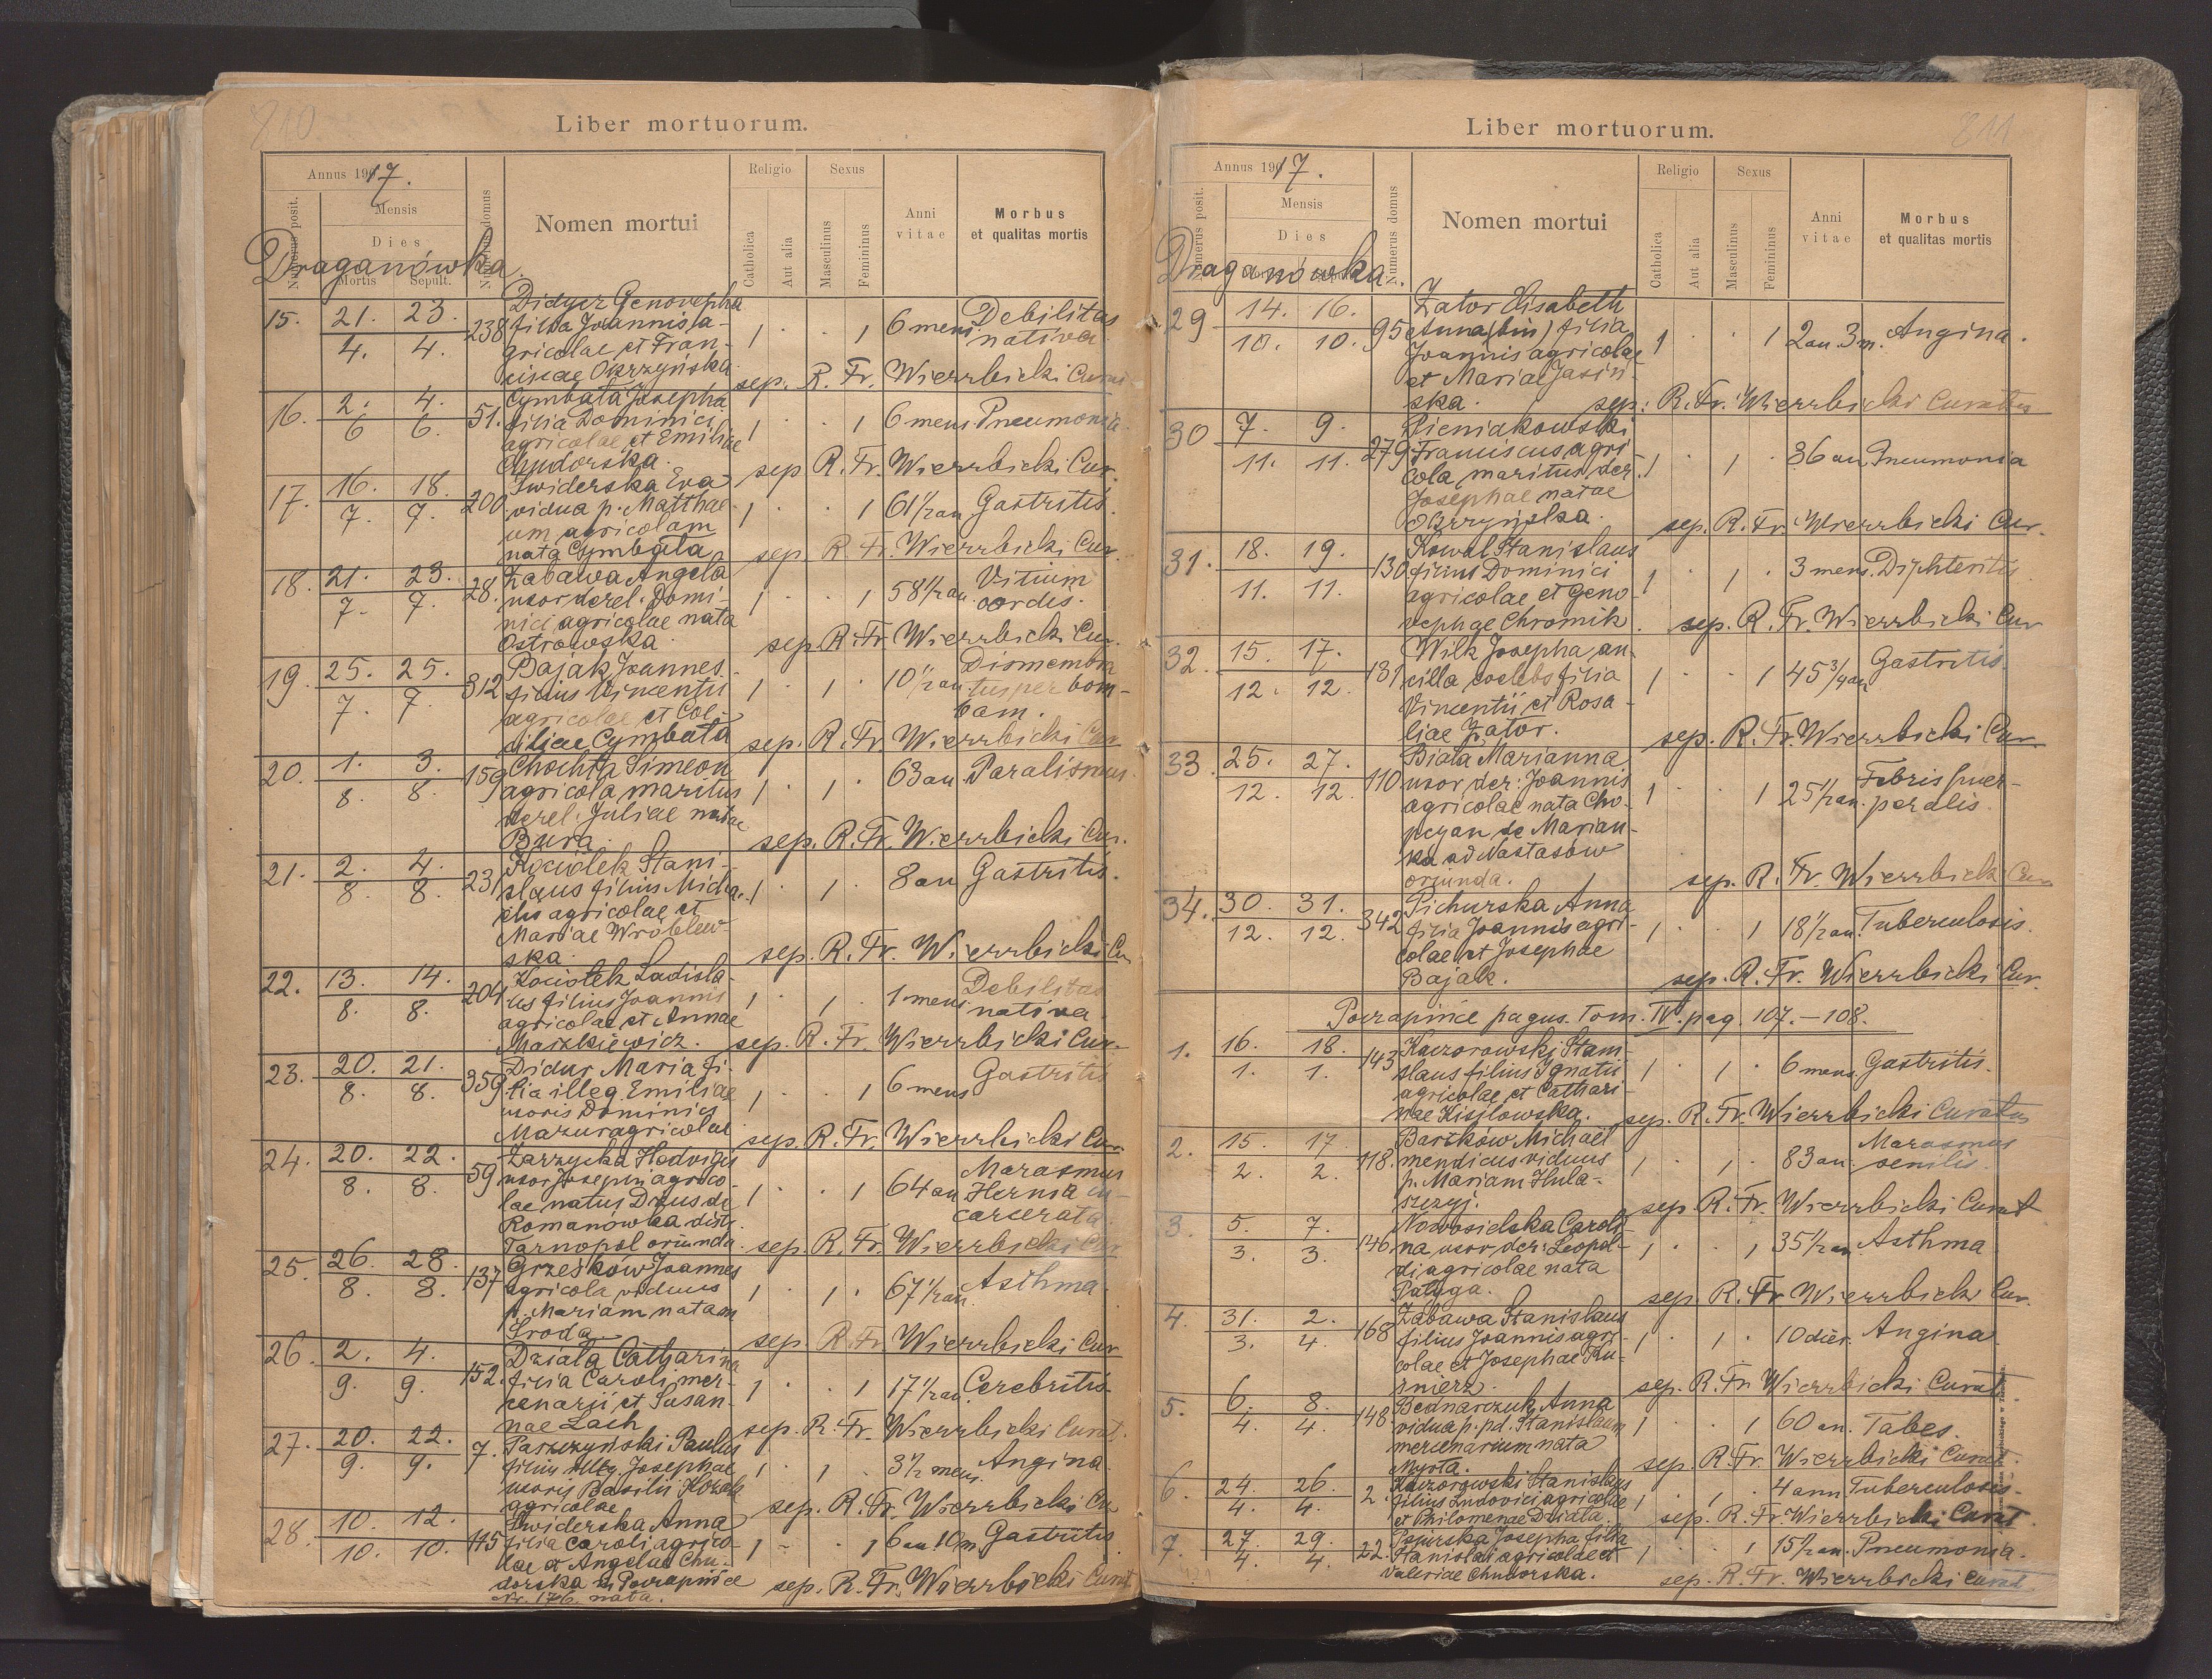 210
Liber mortuorum.
Annus 1917.
Mensis
Dies
Mortis
Sepult.
Numerus posit.
Numerus domus
Nomen mortui
Religio
Catholica
Aut alia
Sexus
Masculinus
Femininus
Anni vitae
Morbus et qualitas mortis
Draganówka.
15. 21. 23. 238 Didycz Genovepha 1 . . 1 6 mens Debilitas
4. 4. filia Joannis a- nativa
gricolae et Fran-
ciscae Okrzyńska sep. R. Fr. Wierzbicki
16. 2. 4. 51. Cymbała Josepha 1 . . 1 6 mens Pneumonia
6 6. filia Dominici
agricolae et Emiliae
Chudorska. sep R. Fr. Wierzbicki Cur.
17. 16. 18. 200 Swiderska Eva 1 . . 1 61 1/2 an Gastritis.
7. 7. vidua p. Matthae-
um agricolam
nata Cymbała sep. R. Fr. Wierzbicki Cur.
18. 21. 23. 28. Zabawa Angela 1 . . 1 58 1/2 an Vitium
7. 7. uxor derel. Domi- cordis.
nici agricolae nata
Ostrowska sep. R. Fr. Wierzbicki Cur.
19. 25. 25. 312 Bajak Joannes 1 . 1 . 10 1/2 an Dismembra
7. 7. filius Vincentii tus per bom-
agricolae et Coe- bam.
ciliae Cymbała sep. R. Fr. Wierzbicki Cur
20. 1. 3. 159 Chochła Simeon 1 . 1 . 63 an Paralismus.
8. 8. agricola maritus
derel. Juliae natae
Bura. sep. R. Fr. Wierzbicki Cur.
21. 2. 4. 231 Kociołek Stani- 1 . 1 . 8 an Gastritis.
8. 8. slaus filius Micha-
elis agricolae et
Mariae Wróblew-
ska sep. R. Fr. Wierzbicki Cur
22. 13. 14. 204 Kociołek Ladisla- 1 . 1 . 1 mens Debilitas
8. 8. us filius Joannis nativa
agricolae et Annae
Maszkiewicz. sep. R. Fr. Wierzbicki Cur.
23. 20. 21. 359 Didur Maria fi- 1 . . 1 6 mens Gastritis
8. 8. lia illeg. Emiliae
uxoris Dominici
Mazur agricolae sep. R. Fr. Wierzbicki Cur
24. 20. 22. 59 Zarzycka Hedvigis 1 . . 1 64 an Marasmus
8. 8. uxor Josephi agrico- Hernia in-
lae natus Dzius de carcerata
Romanówka distr.
Tarnopol oriunda. sep. R. Fr. Wierzbicki Cur
25. 26. 28. 137 Grześków Joannes 1 . 1 . 67 1/2 an. Asthma.
8. 8. agricola viduus
p. Mariam natam
Sroda sep R. Fr Wierzbicki Cur
26. 2. 4. 152. Działa Catharina 1 . . 1 17 1/2 an Cerebritis
9. 9. filia Caroli mer-
cenarii et Susan-
nae Lach sep. R. Fr. Wierzbicki Curat.
27. 20. 22. 7. Paszczyński Paulus 1 . 1 . 3 1/2 mens. Angina
9. 9. filius illeg. Josephae
uxoris Basilii Kozak
agricolae sep. R. Fr. Wierzbicki Cu
28. 10. 12. 115 Swiderska Anna 1 - . 1 6 an 10 m. Gastritis
10. 10. filia Caroli agrico-
lae et Angelae Chu-
dorska in Poczapińce sep. R. Fr. Wierzbicki Curat.
Nr. 176. nata.
211
Liber mortuorum.
Annus 1917.
Mensis
Dies
Numerus posit.
Numerus domus
Nomen mortui
Religio
Catholica
Aut alia
Sexus
Masculinus
Femininus
Anni vitae
Morbus et qualitas mortis
Draganówka.
29 14. 16. 95 Zator Elisabeth 1 . . 1 2 an. 3 m. Angina.
10. 10. Anna (bin) filia
Joannis agricolae
et Mariae Jasiń-
ska. sep: R. Fr. Wierzbicki Curatus
30 7. 9. 279 Pieniakowski 1 . 1 . 36 an Pneumonia
11. 11. Franciscus agri-
cola maritus der.
Josephae natae
Okrzyńska. sep. R. Fr. Wierzbicki Cur.
31. 18. 19. 130 Kowal Stanislaus 1 . 1 . 3 mens. Diphteritis
11. 11. filius Dominici
agricolae et Geno-
vephae Chromik. sep. R. Fr. Wierzbicki Cur
32. 15. 17. 131 Wilk Josepha, an- 1 . . 1 45 3/4 an Gastritis.
12. 12. cilla coelebs filia
Vincentii et Rosa-
liae Zator. sep. R. Fr. Wierzbicki Cur.
33. 25. 27. 110 Biała Marianna 1 . . 1 25 1/2 an. Febris puer-
12. 12. uxor der: Joannis peralis.
agricolae nata Cho-
pczan de Marian-
ka ad Nastasów
oriunda. sep. R. Fr. Wierzbicki Cur
34. 30. 31. 342 Pichurska Anna 1 . . 1 18 1/2 an. Tuberculosis.
12. 12. filia Joannis agri-
colae et Josephae
Bajak. sep. R. Fr. Wierzbicki Cur.
Poczapińce pagus. Tom. IV. pag. 107. – 108.
1. 16. 18. 143 Kaczorowski Stani- 1 . 1 . 6 mens. Gastritis.
1. 1. slaus filius Ignatii
agricolae et Cathari-
nae Kisilowska. sep. R. Fr. Wierzbicki Curatus
2. 15. 17 118. Barzków Michaël 1 . 1 . 83 an. Marasmus
2. 2. mendicus viduus senilis.
p. Mariam Hula-
szczyj. sep R. Fr. Wierzbicki Curat
3. 5. 7. 146 Nowosielska Caroli- 1 . . 1 35 1/2 an Asthma
3. 3. na uxor der: Leopol-
di agricolae nata
Pałyga. sep R. Fr Wierzbicki Cur.
4. 31. 2. 168 Zabawa Stanislaus 1 . 1 . 10 dier. Angina
3. 4. filius Joannis agri-
colae et Josephae Ku-
śnierz. sep. R. Fr. Wierzbicki Curat.
5. 6. 8. 148. Bednarczuk Anna 1 . . 1 60 an. Tabes.
4. 4. vidua p. pd. Stanislaum
mercenarium nata
Mysła. sep. R. Fr. Wierzbicki Curat.
6. 24. 26. 2. Kaczorowski Stanislaus 1 . 1 . 4 ann Tuberculosis.
4. 4. filius Ludovici agricolae
et Philomenae Dziala. sep. R. Fr. Wierzbicki Curat.
7. 27. 29. 22. Josepha filia 1 . . 1 15 1/2 an. Pneumonia.
4. 4. Stanislai agricolae et
Valeriae Chudorska. sep. R. Fr. Wierzbicki Curat